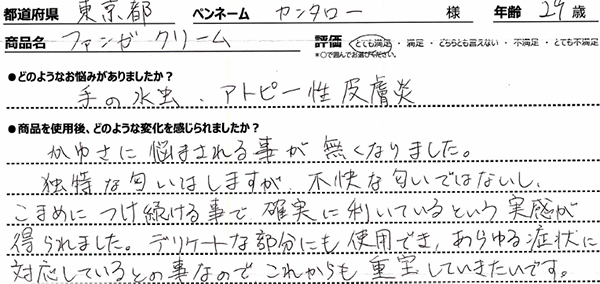 都道府県 東京都 ペンネーム カンタロー 様 年齢 29歳
商品名 ファンガクリーム 評価 とても満足・満足・どちらとも言えない・不満足・とても不満足
*○で囲んでお選びください。
●どのようなお悩みがありましたか？
手の水虫、アトピー性皮膚炎
●商品を使用後、どのような変化を感じられましたか？
かゆさに悩まされる事が無くなりました。
独特な匂いはしますが、不快な匂いではないし、
こまめにつけ続ける事で確実に利いているという実感が
得られました。デリケートな部分にも使用でき、あらゆる症状に
対応しているとの事なのでこれからも重宝していきたいです。